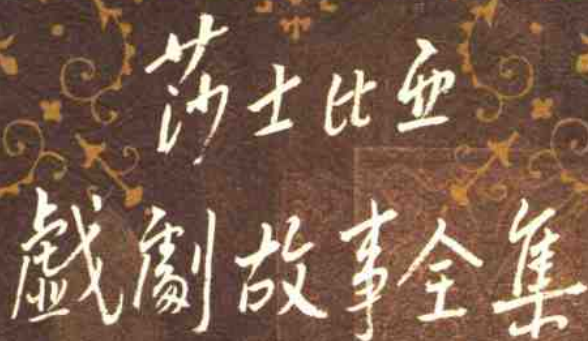 莎士比亚
戲劇故事全集